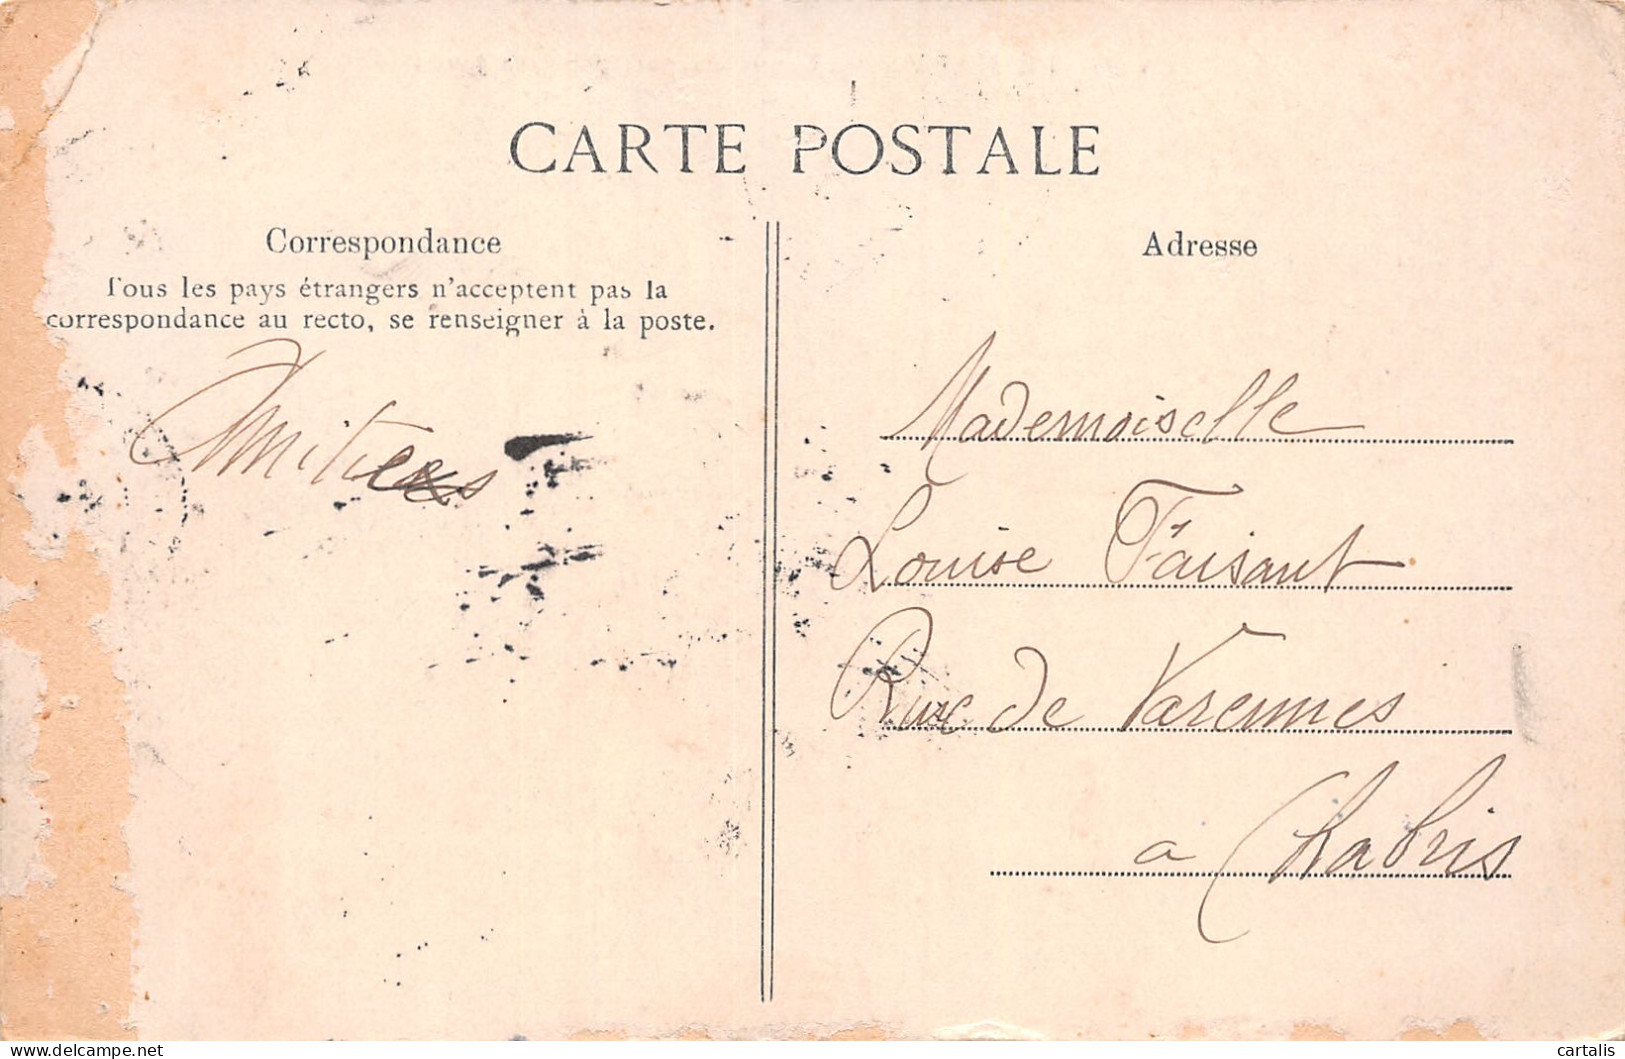 CARTE POSTALE
Correspondance
Tous les pays étrangers n'acceptent pas la
correspondance au recto, se renseigner à la poste.
Amitiés
Adresse
Mademoiselle
Louise Faisant
Rue de Varennes
a Chabris
cartalis